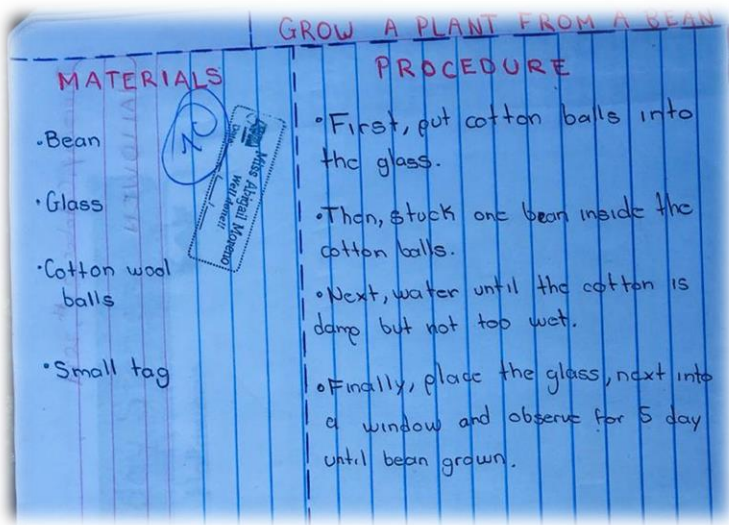 GROW A PLANT FROM A BEAN
MATERIALS
·Bean
·Glass
·Cotton wool
balls
·Small tag
Miss Abigail Moreno
Well done!!
Date:
PROCEDURE
·First, put cotton balls into
the glass.
·Then, stuck one bean inside the
cotton balls.
·Next, water until the cotton is
damp but not too wet.
·Finally, place the glass, next into
a window and observe for 5 day
until bean grown.